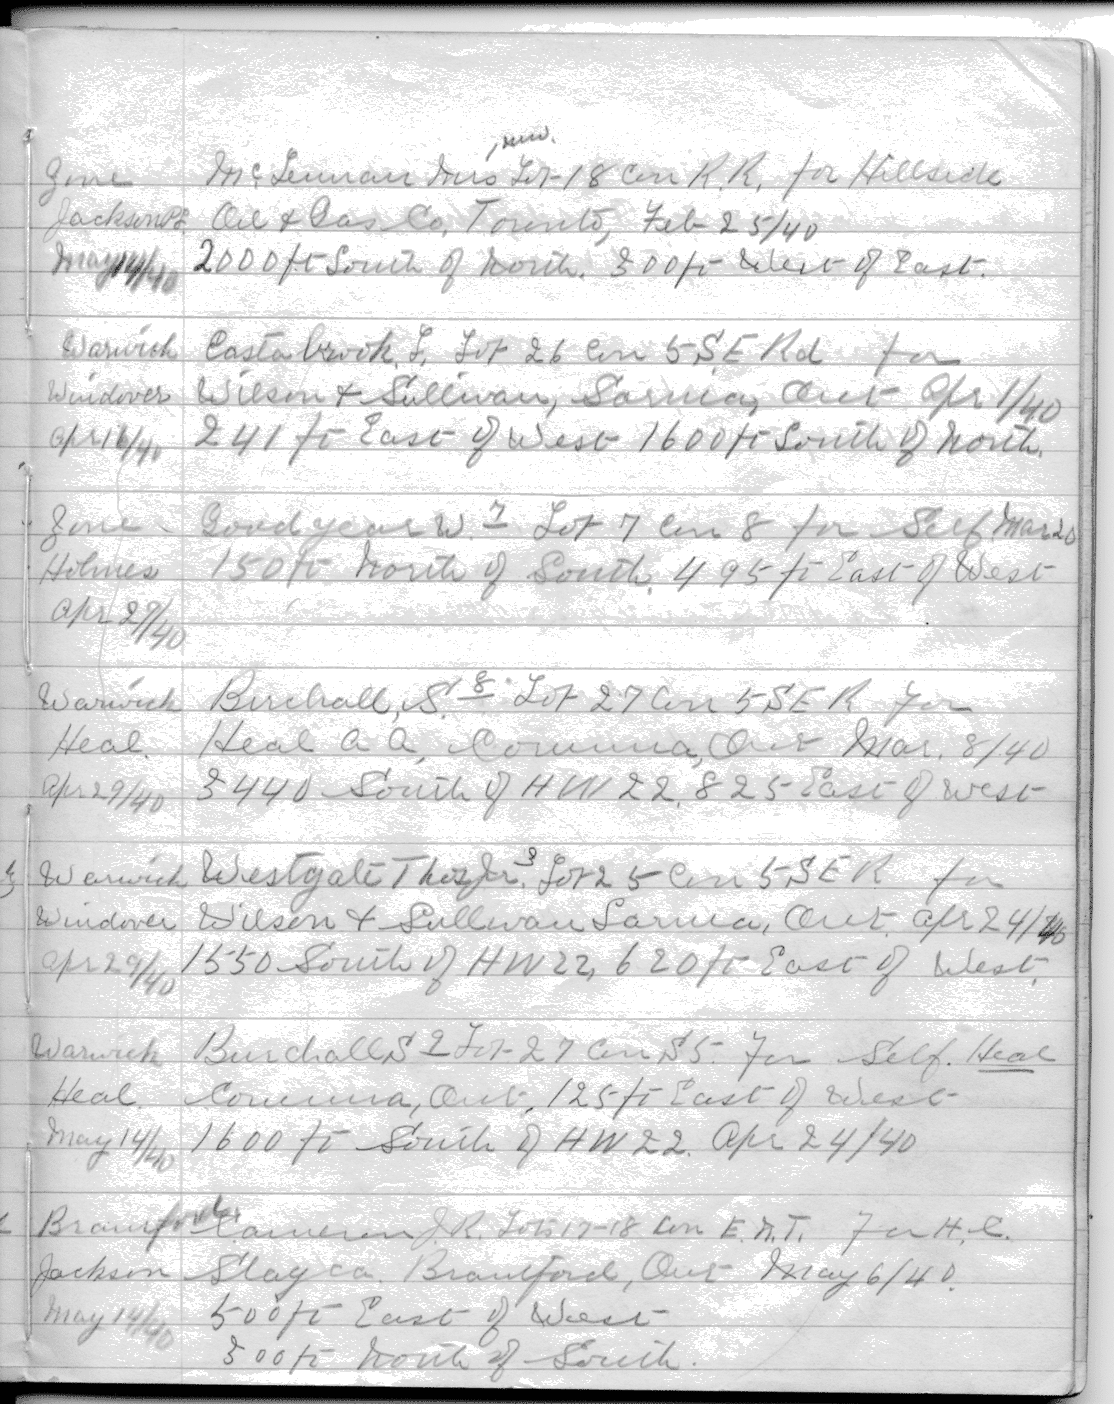 new.
Zone McLennan Mrs Lot 18 Con R.R. for Hillside
Jackson Oil & Gas Co, Toronto, Feb 25/40
May 14/40 2000 ft South of North. 300 ft West of East.
Warwick Eastabrook, L. Lot 26 Con 5 S.E Rd for
Windover Wilson & Sullivan, Sarnia, Ont Apr 1/40
Apr 16/40 241 ft East of West 1600 ft South of North.
Zone - Goodyear W. 7 Lot 7 Con 8 for Self Mar 20
Holmes 150 ft North of South. 495 ft East of West
Apr 29/40
Warwick Burchall, S. 8 Lot 27 Con 5 SE R For
Heal. Heal A A, Corunna, Ont Mar. 8/40
Apr 29/40 3440 South of HW 22. 825 East of West
Warwick Westgate Thos Jr. 3 Lot 25 Con 5 SE R for
Windover Wilson & Sullivan Sarnia, Ont. Apr 24/40
Apr 29/40 1550 South of HW 22, 620 ft East of West.
Warwick Burchall S 2 Lot 27 Con S5. For Self. Heal
Heal. Corunna, Ont. 125 ft East of West
May 14/40 1600 ft South of HW 22. Apr 24/40
Brantford Cameron J.R. Lots 17-18 Con E.N.T. For H.C.
Jackson Slag Co. Brantford, Ont May 6/40.
May 14/40 500 ft East of West
300 ft North of South.